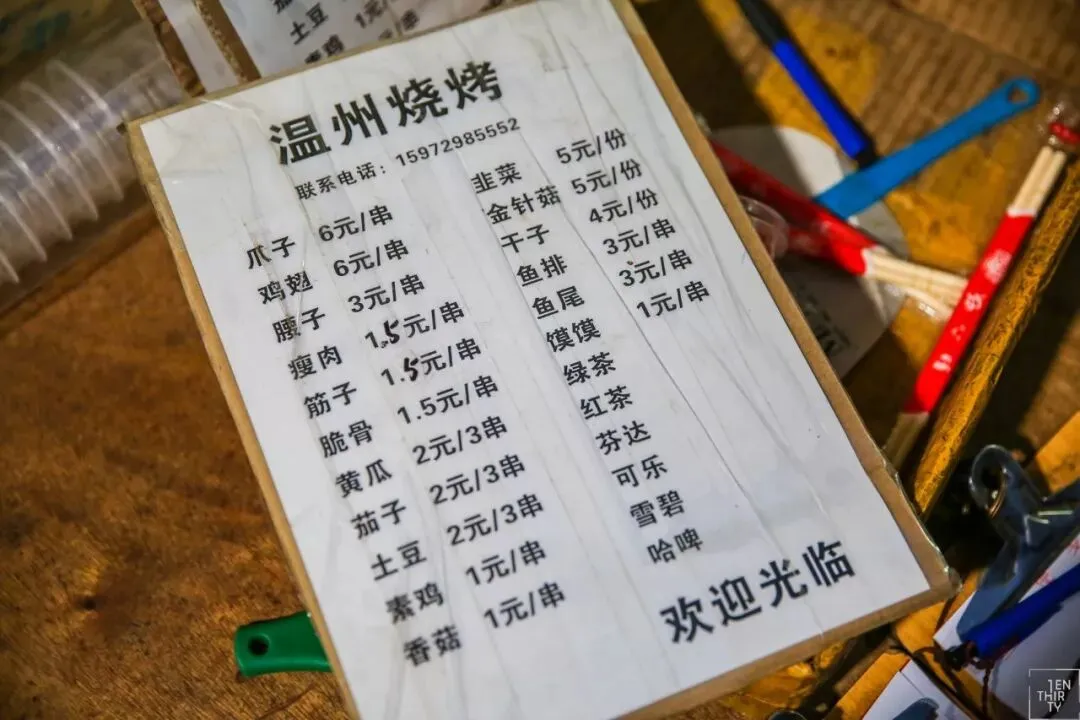 土豆 1元/
素鸡
温州烧烤
联系电话：15972985552
爪子 6元/串
鸡翅 6元/串
腰子 3元/串
瘦肉 1.5元/串
筋子 1.5元/串
脆骨 1.5元/串
黄瓜 2元/3串
茄子 2元/3串
土豆 2元/3串
素鸡 1元/串
香菇 1元/串
韭菜 5元/份
金针菇 5元/份
干子 4元/份
鱼排 3元/串
鱼尾 3元/串
馍馍 1元/串
绿茶
红茶
芬达
可乐
雪碧
哈啤
欢迎光临
TEN
THIR
TY